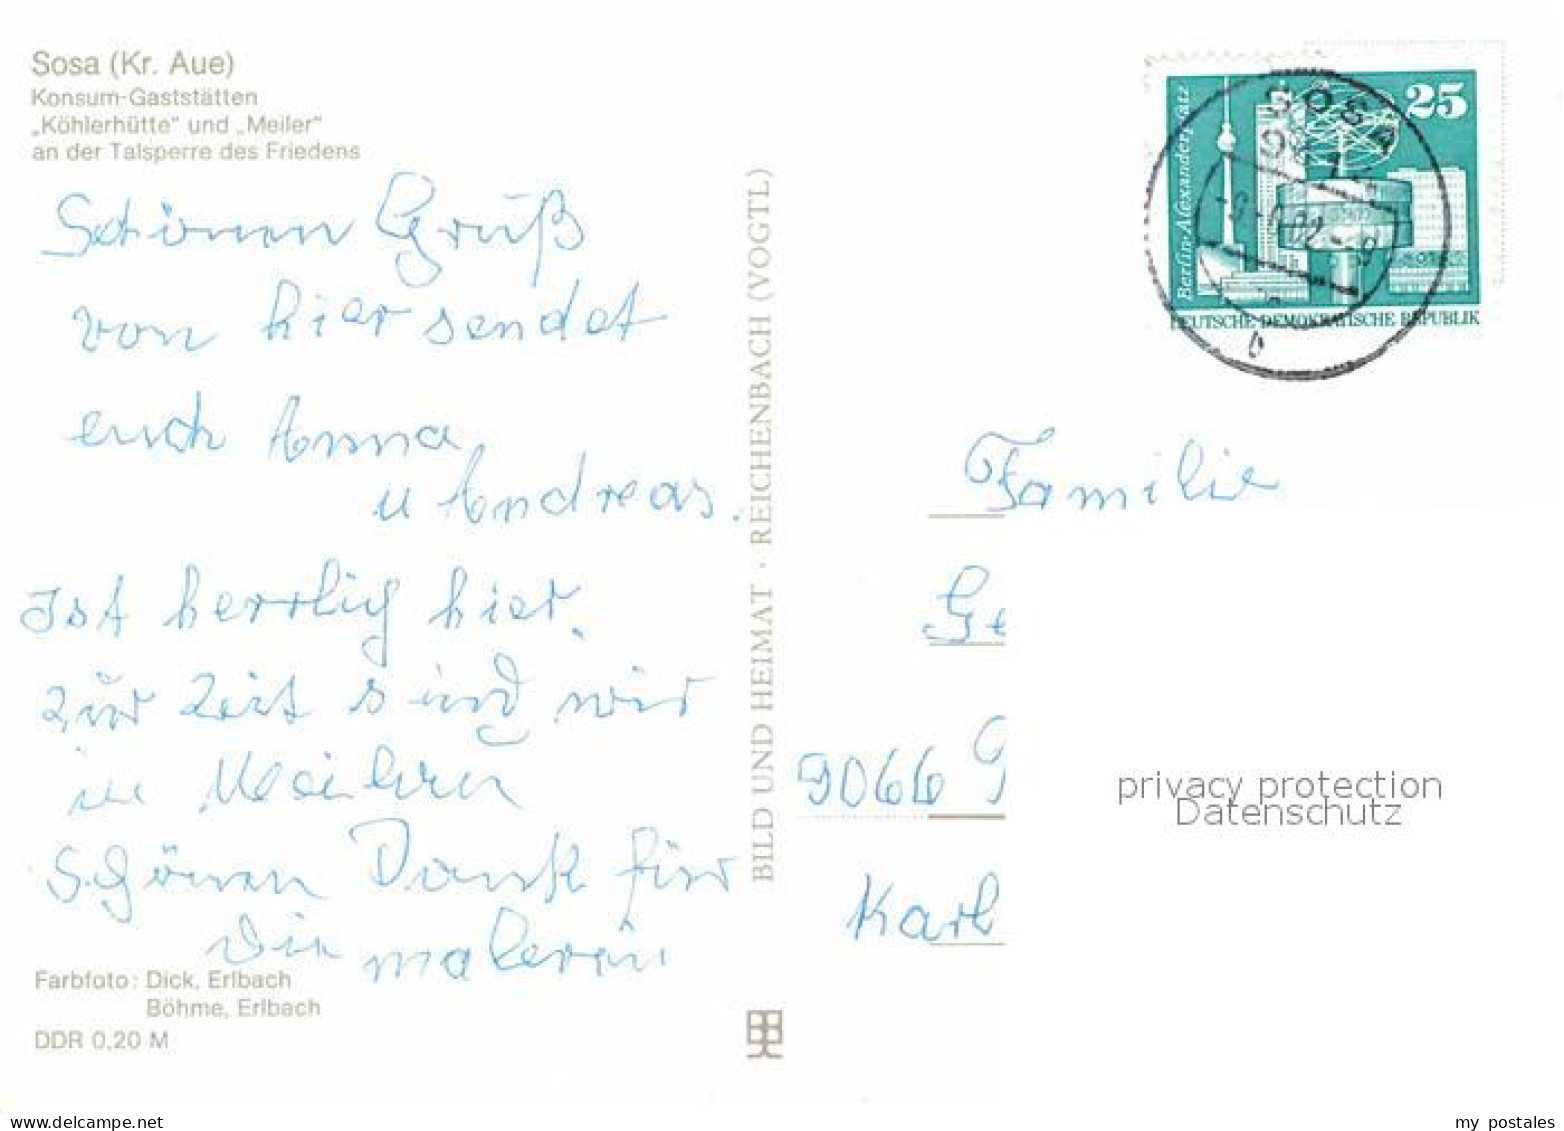 Sosa (Kr. Aue)
Konsum-Gaststätten
„Köhlerhütte" und „Meiler"
an der Talsperre des Friedens
Schönen Gruß
von hier sendet
euch Anna
u Andreas.
Ist herrlig hier.
zur Zeit sind wir
in
Schönen Dank für
die malerin
Farbfoto: Dick, Erlbach
Böhme, Erlbach
DDR 0,20 M
BILD UND HEIMAT · REICHENBACH (VOGTL)
Berlin-Alexanderplatz
25
DEUTSCHE DEMOKRATISCHE REPUBLIK
SOSA
b
Familie
Ge
9066
Karl
privacy protection
Datenschutz
my postales